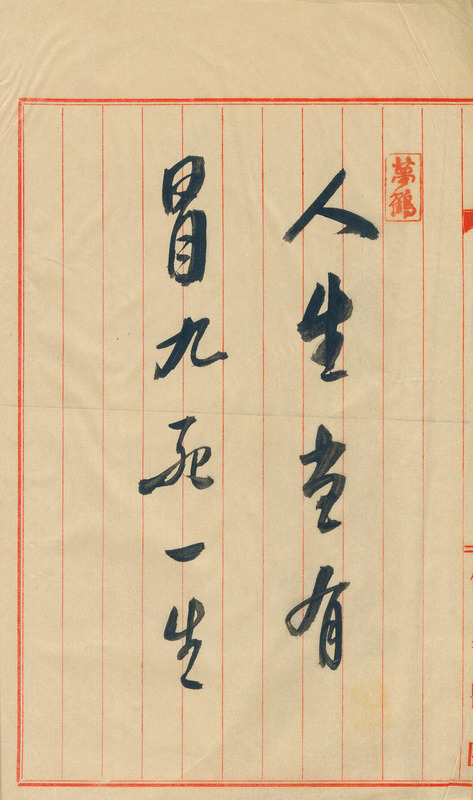 萬鶴
人生當有
冒九死一生